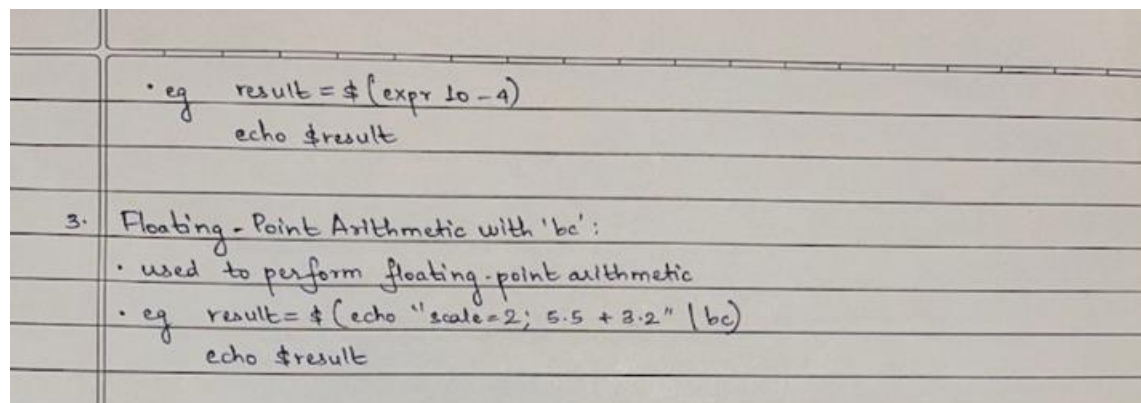 • eg result = $(expr 10 - 4)
echo $result
3. Floating-Point Arithmetic with 'bc':
• used to perform floating-point arithmetic
• eg result = $(echo "scale=2; 5.5 + 3.2" | bc)
echo $result